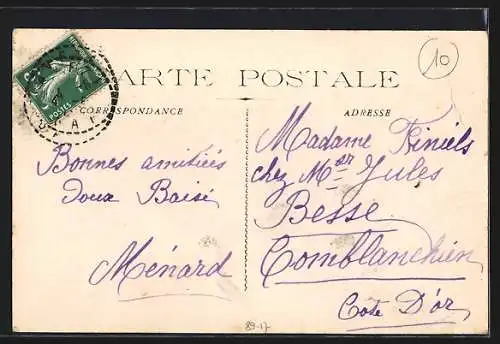 10
CARTE POSTALE
CORRESPONDANCE
ADRESSE
POSTES
Bonnes amitiées
doux Baisé
Ménard
Madame
chez Mr Jules
Besse
Comblanchien
Cote D'or
89-17